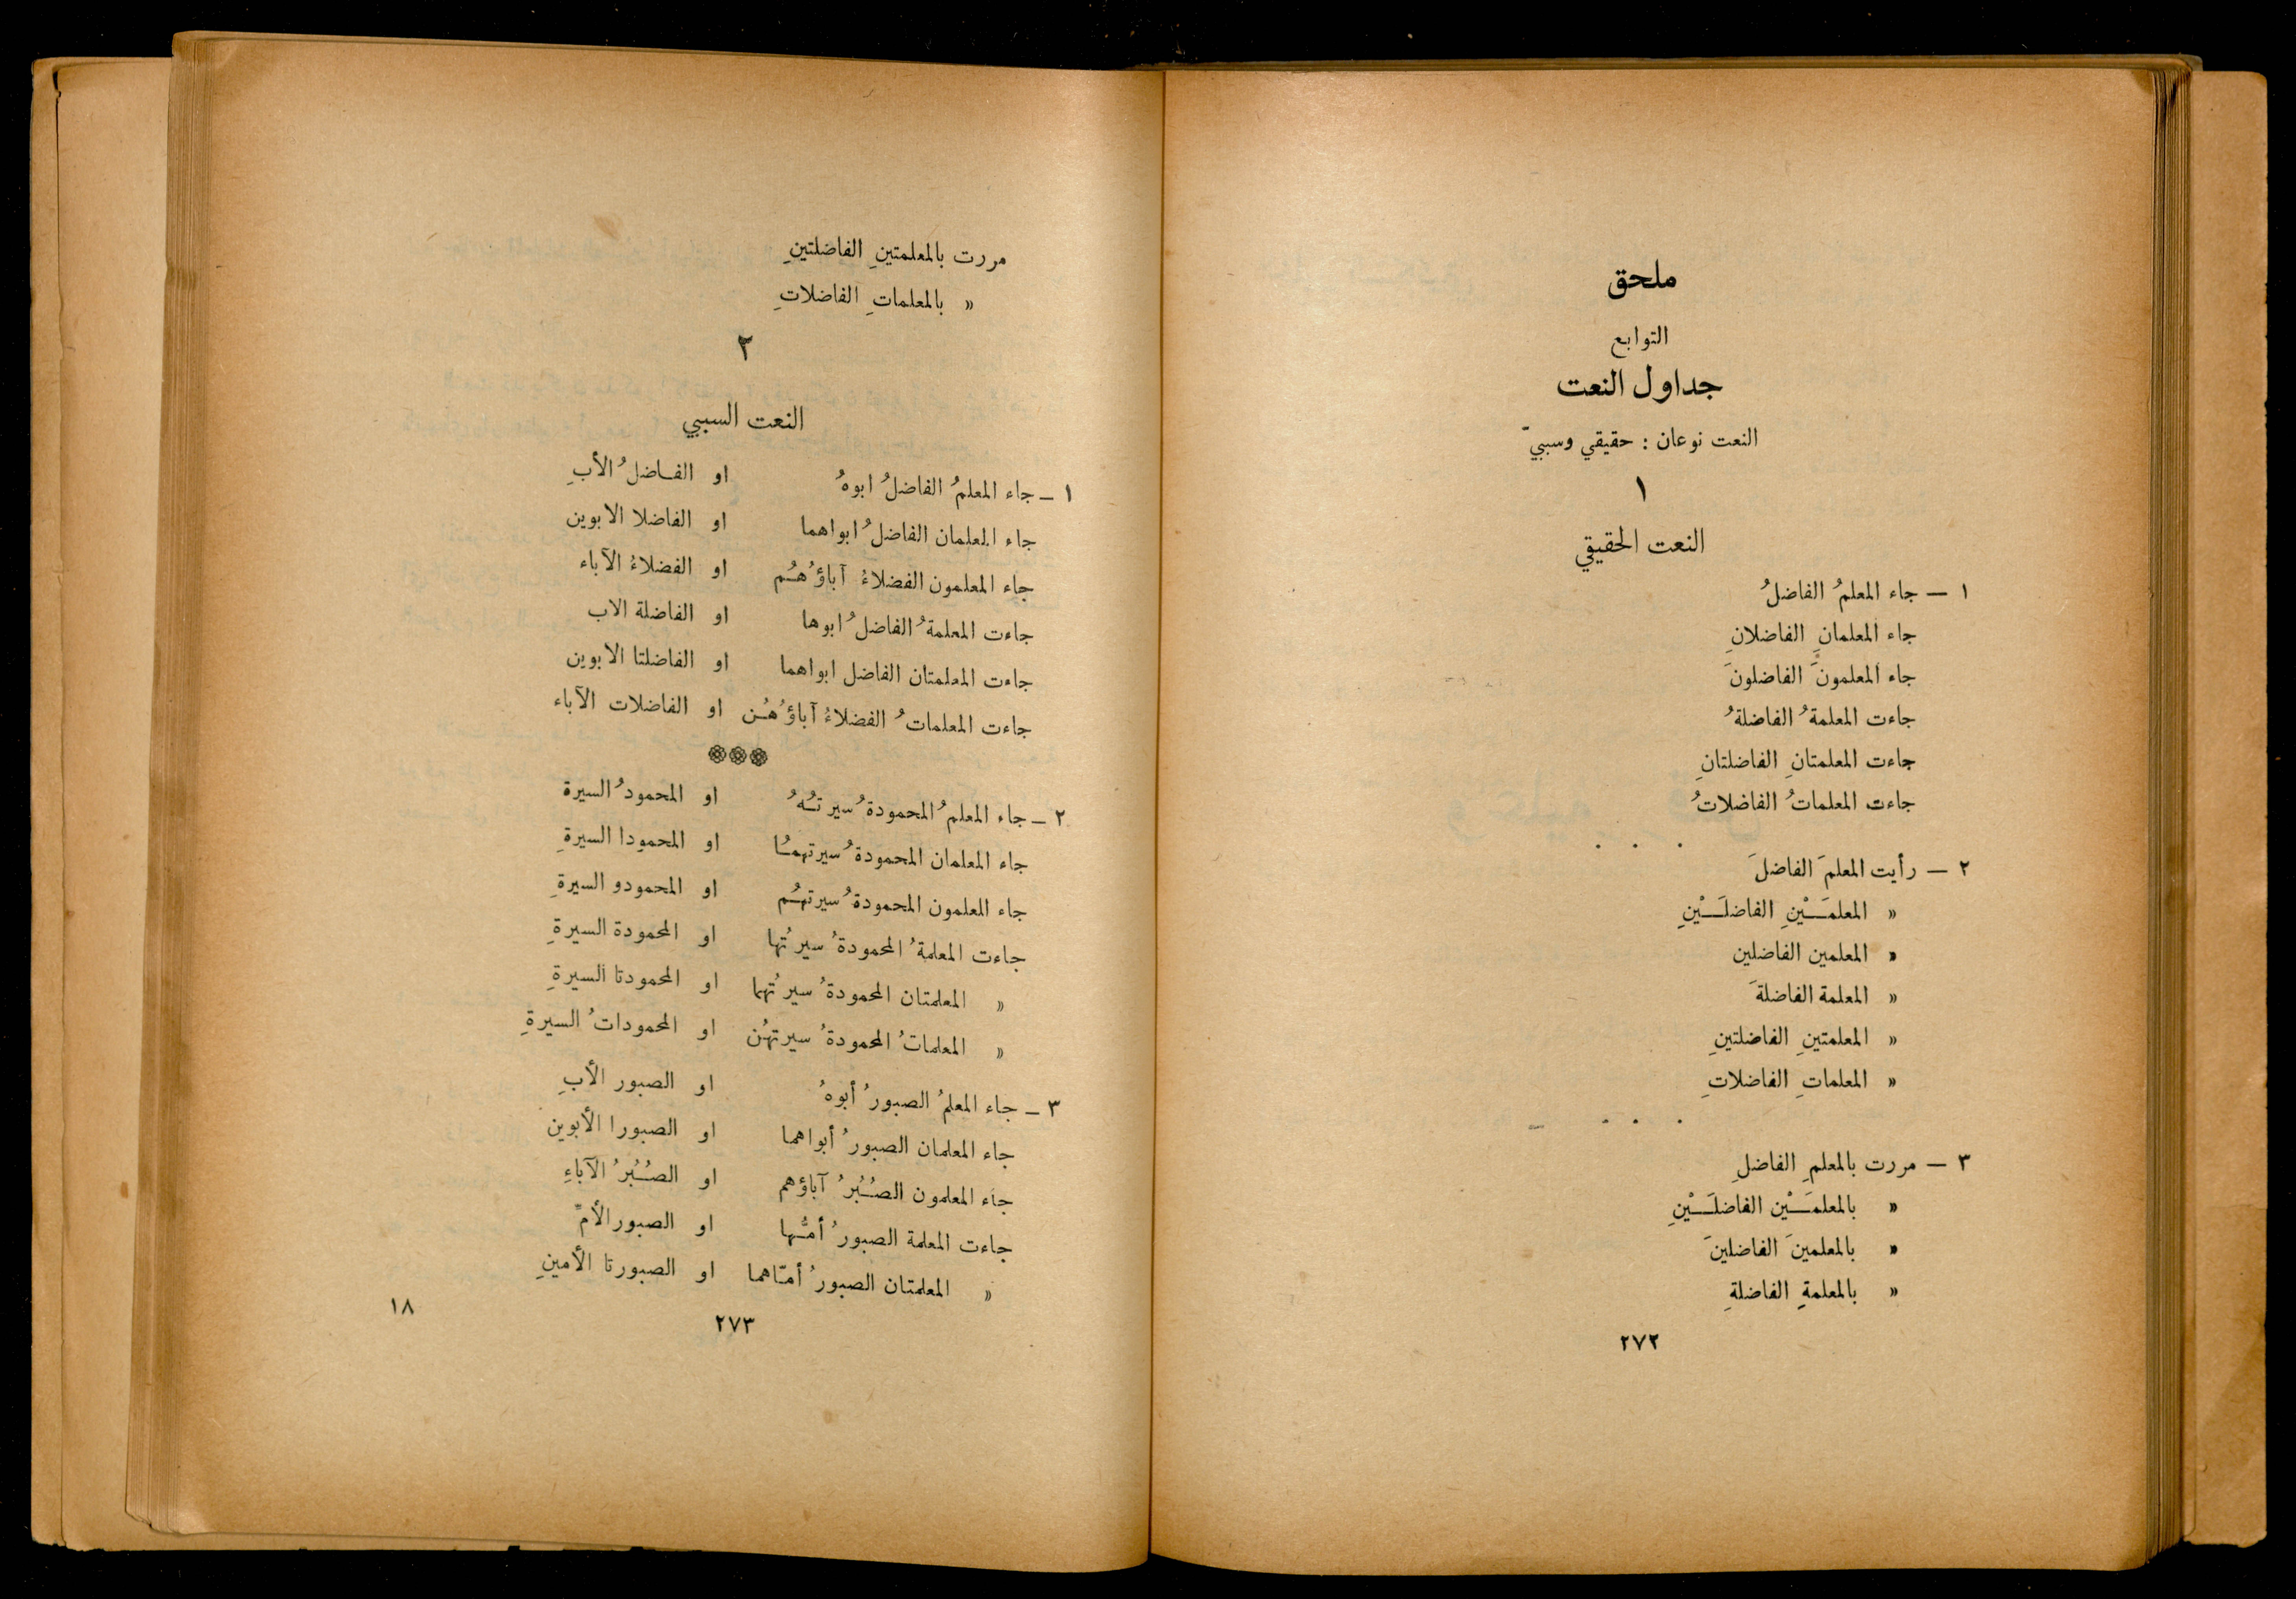 ملحق
التوابع
جداول النعت
النعت نوعان : حقيقي وسببيّ
١
النعت الحقيقي
١ — جاء المعلمُ الفاضلُ
جاء المعلمانِ الفاضلانِ
جاء المعلمونَ الفاضلونَ
جاءت المعلمةُ الفاضلةُ
جاءت المعلمتانِ الفاضلتانِ
جاءت المعلماتُ الفاضلاتُ
. . .
٢ — رأيت المعلمَ الفاضلَ
» المعلمَـيْنِ الفاضلَـيْنِ
» المعلمين الفاضلين
» المعلمة الفاضلةَ
» المعلمتينِ الفاضلتينِ
» المعلماتِ الفاضلاتِ
. . .
٣ — مررت بالمعلمِ الفاضلِ
» بالمعلمَـيْن الفاضلَـيْنِ
» بالمعلمينَ الفاضلينَ
» بالمعلمةِ الفاضلةِ
٢٧٢
مررت بالمعلمتينِ الفاضلتينِ
» بالمعلماتِ الفاضلاتِ
٢
النعت السببي
١ ـ جاء المعلمُ الفاضلُ ابوهُ او الفـاضلُ الأبِ
جاء المعلمان الفاضلُ ابواهما او الفاضلا الابوين
جاء المعلمون الفضلاءُ آباؤُهـُم او الفضلاءُ الآباء
جاءت المعلمةُ الفاضلُ ابوها او الفاضلة الاب
جاءت المعلمتان الفاضل ابواهما او الفاضلتا الابوين
جاءت المعلماتُ الفضلاءُ آباؤُهـُن او الفاضلات الآباء
❁❁❁
٢ ـ جاء المعلمُ المحمودةُ سيرتـُهُ او المحمودُ السيرة
جاء المعلمان المحمودةُ سيرتهمـُا او المحمودا السيرةِ
جاء المعلمون المحمودةُ سيرتهـُم او المحمودو السيرةِ
جاءت المعلمةُ المحمودةُ سيرتُها او المحمودة السيرةِ
» المعلمتان المحمودةُ سيرتُهما او المحمودتا السيرةِ
» المعلماتُ المحمودةُ سيرتهُن او المحموداتُ السيرةِ
٣ ـ جاء المعلمُ الصبورُ أبوهُ او الصبور الأبِ
جاء المعلمان الصبورُ أبواهما او الصبورا الأبوين
جاء المعلمون الصـُبُرُ آباؤهم او الصـُبُرُ الآباءِ
جاءت المعلمة الصبورُ أمـُّها او الصبورالأمِّ
» المعلمتان الصبورُ أمـّاهما او الصبورتا الأمينِ
٢٧٣
١٨